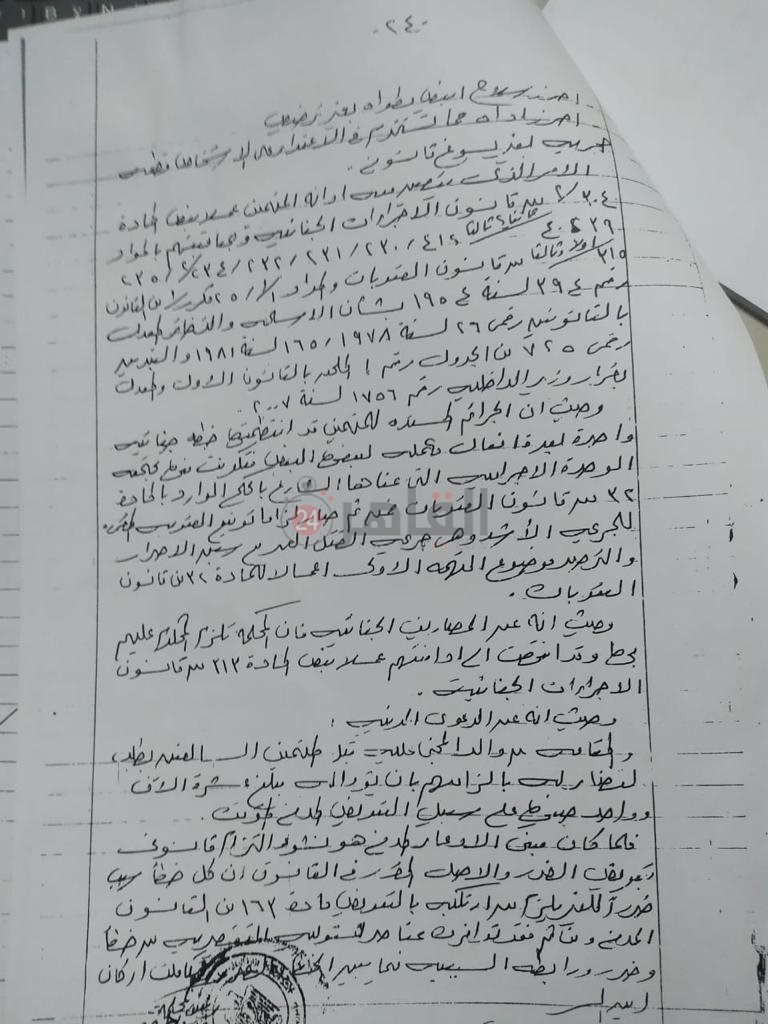 -٢٤-
احرز سلاح ابيض مطواه بغير ترخيص
احرز اداه مما تستخدم في الاعتداء على الاشخاص
بغير مسوغ قانوني.
الامر الذي يتعين معه ادانة المتهمين عملا بنص المادة
٣٠٤/٢ من قانون الاجراءات الجنائية ومعاقبتهم بالمواد
٣٩، ٤٠، ٤١، ٢٣٠/٢٣١/٢٣٢/٢٣٤/٢، ٢٣٥
من قانون العقوبات والمواد ١/١، ٢٥ مكرر/١ من القانون
رقم ٣٩٤ لسنة ١٩٥٤ بشأن الاسلحة والذخائر المعدل
بالقانونين رقمي ٢٦ لسنة ١٩٧٨، ١٦٥ لسنة ١٩٨١ والبندين
رقمي ٥، ٧ من الجدول رقم ١ الملحق بالقانون الاول والمعدل
بقرار وزير الداخلية رقم ١٧٥٦ لسنة ٢٠٠٧.
وحيث ان الجرائم المسنده للمتهمين قد انتظمتها خطه جنائيه
واحدة بعدة افعال مكمله لبعضها البعض فتكونت منها مجتمعه
الوحدة الاجراميه التي عناها الشارع بالحكم الوارد بالمادة
٣٢ من قانون العقوبات ومن ثم صار لزاما توقيع العقوبه المقرره
للجريمه الأشد وهي جريمه القتل العمد مع سبق الاصرار
والترصد موضوع التهمه الاولى اعمالا للمادة ٣٢ من قانون
العقوبات.
وحيث انه عن المصاريف الجنائيه فان المحكمة تلزم المحكوم عليهم
بها وقد انتهت الى ادانتهم عملا بنص المادة ٣١٣ من قانون
الاجراءات الجنائية.
وحيث انه عن الدعوى المدنيه:
والمقامه من والد المجنى عليه قبل المتهمين بطلب
القضاء له بالزامهم بان يؤدوا له مبلغ عشرة الاف
وواحد جنيه على سبيل التعويض المدني المؤقت.
فلما كان مبنى الادعاء المدني هو نشوء التزام قانوني
بتعويض الضرر والاصل المقرر في القانون ان كل خطأ سبب
ضررا للغير يلزم من ارتكبه بالتعويض مادة ١٦٣ من القانون
المدني ومن ثم فقد توافرت عناصر المسئوليه التقصيريه من خطأ
وضرر ورابطه السببيه فيما بينهما اركان
القاهرة 24